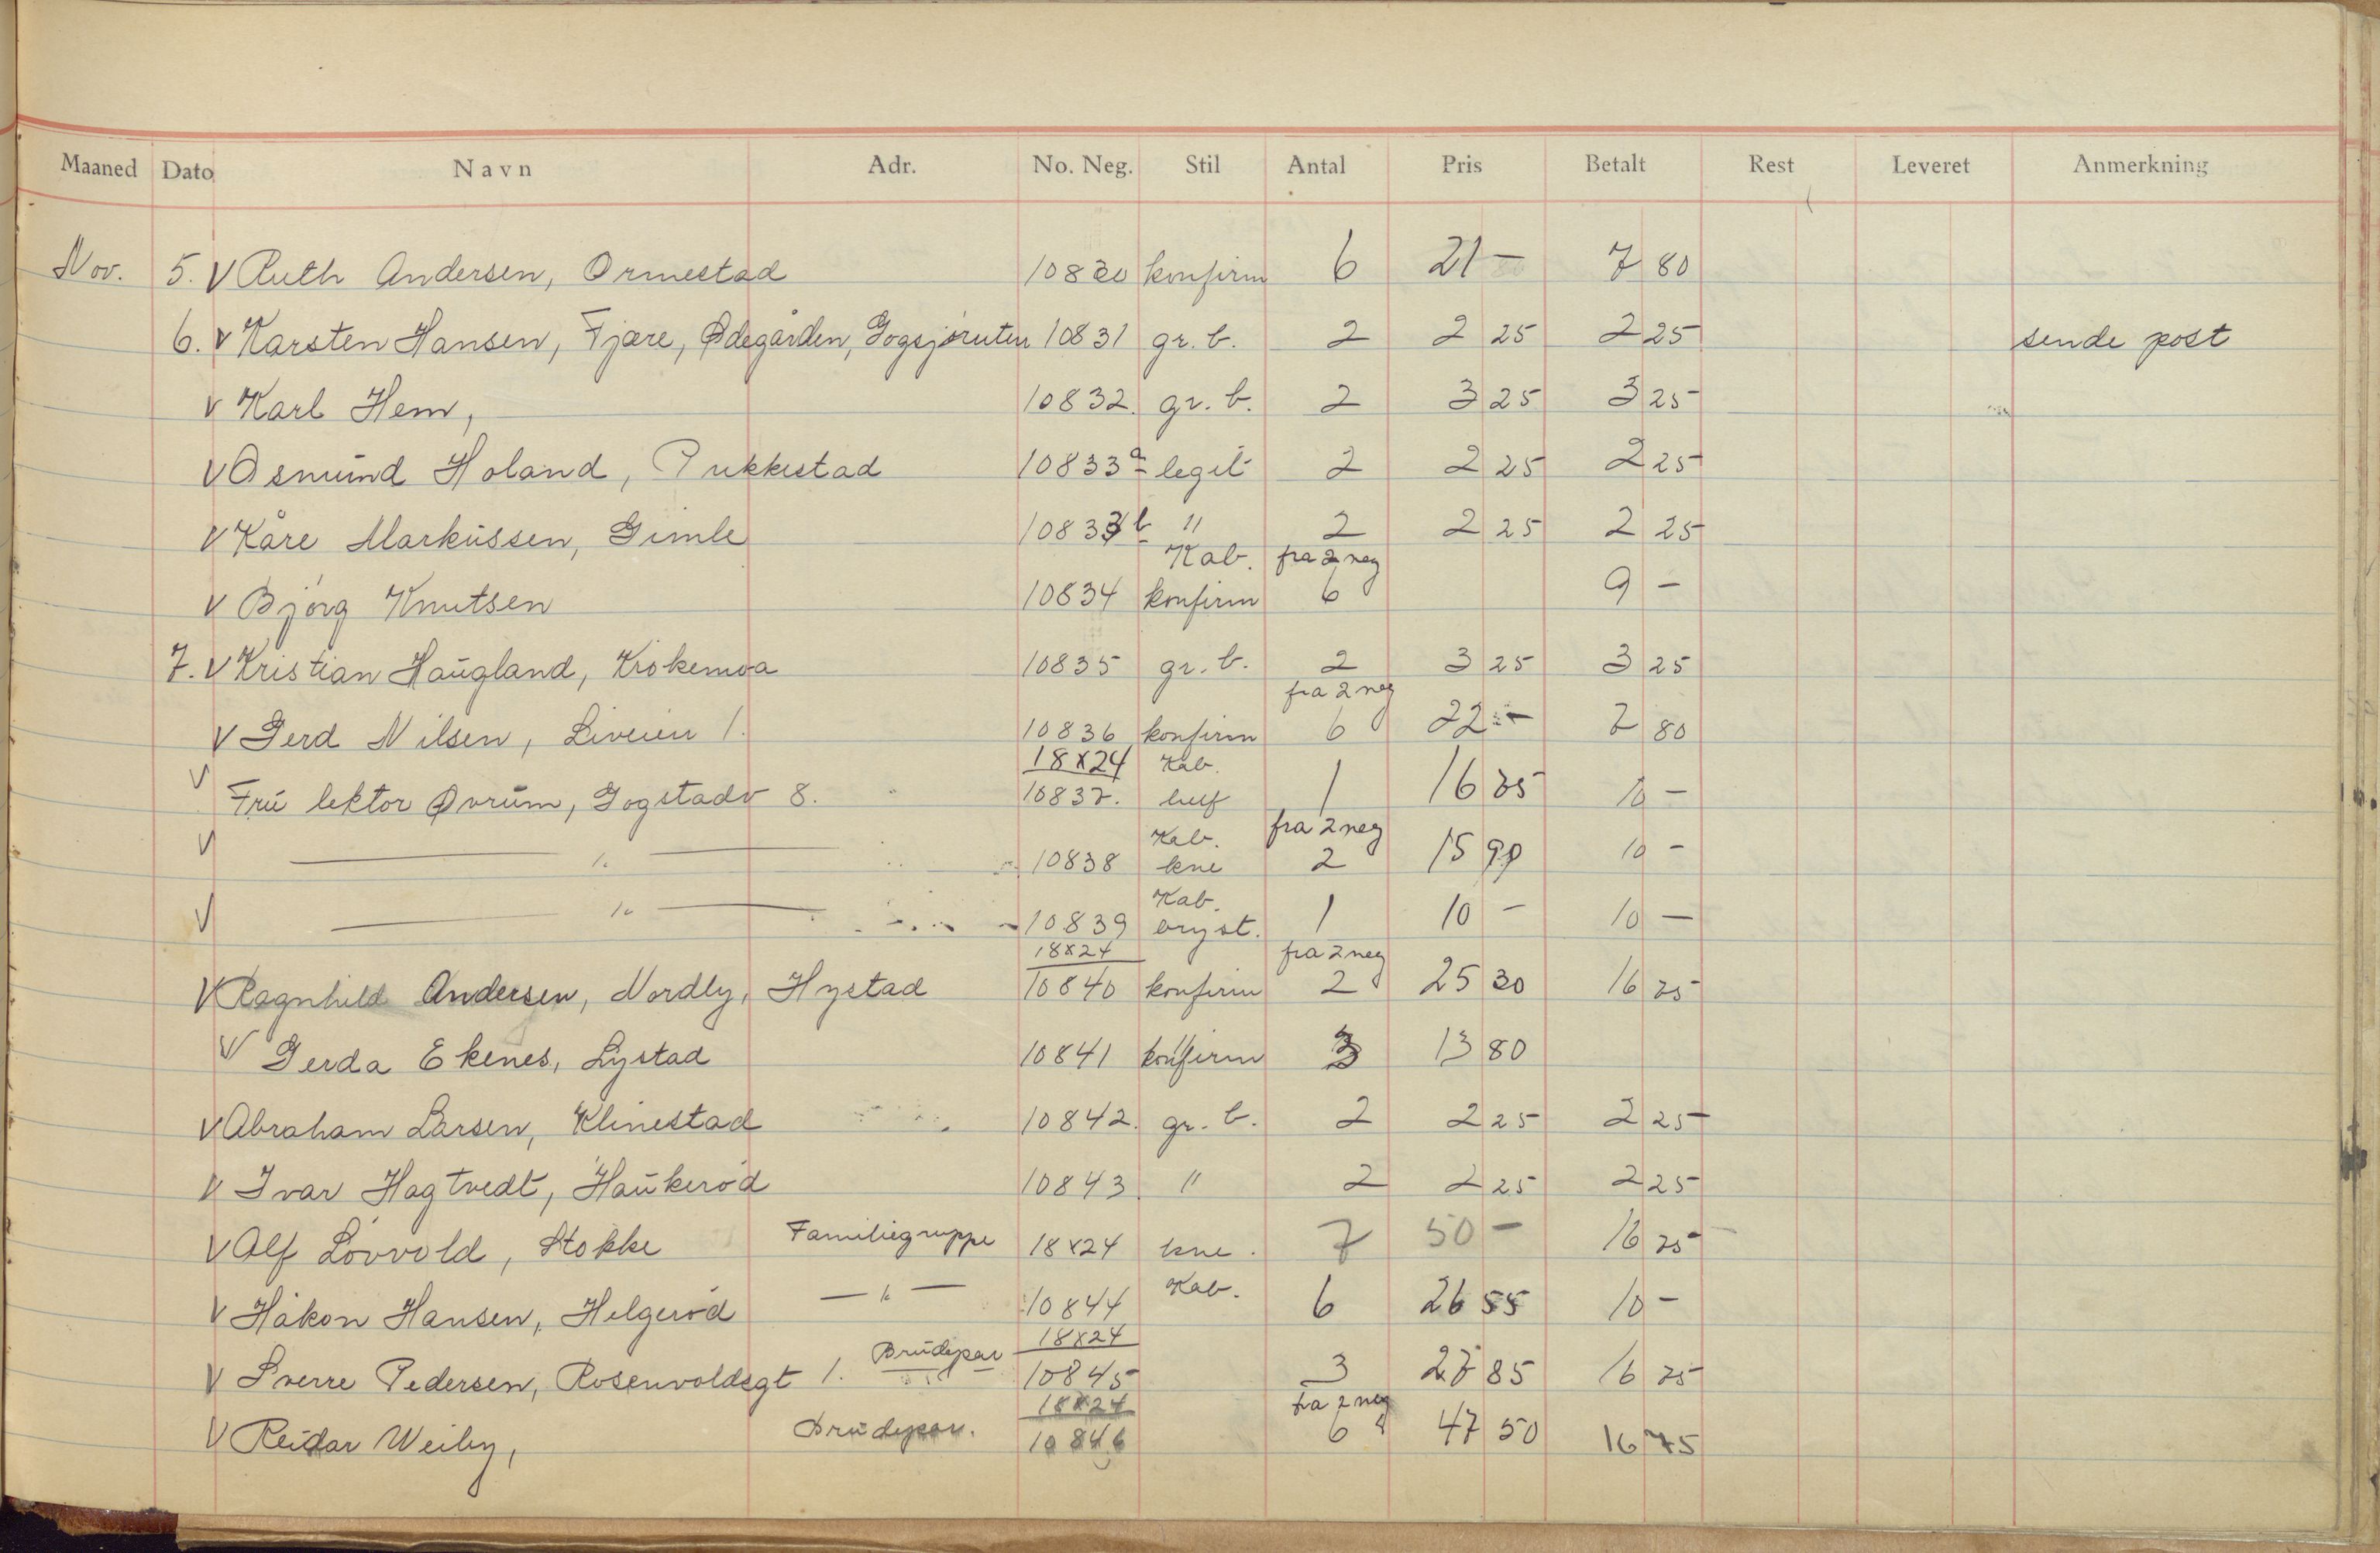 Maaned Dato Navn Adr. No. Neg. Stil Antal Pris Betalt Rest Leveret Anmerkning
Nov. 5. V Ruth Andersen, Ormestad 10830 konfirm 6 21 – 7 80
6. V Karsten Hansen, Fjære, Ødegården, Gogsjøruten 10831 gr. b. 2 2 25 2 25 sende post
V Karl Hem, 10832. gr. b. 2 3 25 3 25
V Asmund Holand, Pukkestad 10833 a legit 2 2 25 2 25
V Kåre Markussen, Gimle 10833 b " 2 2 25 2 25
Kab. fra 2 neg
V Bjørg Knutsen 10834 konfirm 6 9 –
7. V Kristian Haugland, Krokemoa 10835 gr. b. 2 3 25 3 25
fra 2 neg
V Gerd Nilsen, Liveien 1. 10836 konfirm 6 22 – 7 80
18x24 Kab.
V Fru lektor Øvrum, Gogstadv 8. 10837. 1 16 75 10 –
Kab. fra 2 neg
V — " — 10838 kne 2 15 90 10 –
Kab.
V — " — 10839 bryst. 1 10 – 10 –
18x24 fra 2 neg
V Ragnhild Andersen, Nordly, Hystad 10840 konfirm 2 25 30 16 75
V Gerda Ekenes, Lystad 10841 konfirm 3 13 80
V Abraham Larsen, Klinestad 10842. gr. b. 2 2 25 2 25
V Ivar Hagtvedt, Haukerød 10843. " 2 2 25 2 25
V Alf Løvvold, Stokke Familiegruppe 18x24 kne. 7 50 – 16 75
V Håkon Hansen, Helgerød — " — 10844 Kab. 6 26 55 10 –
18x24
V Sverre Pedersen, Rosenvoldsgt 1. Brudepar 10845 3 27 85 16 75
18x24 fra 2 neg
V Reidar Weiby, Brudepar. 10846 6 47 50 16 75